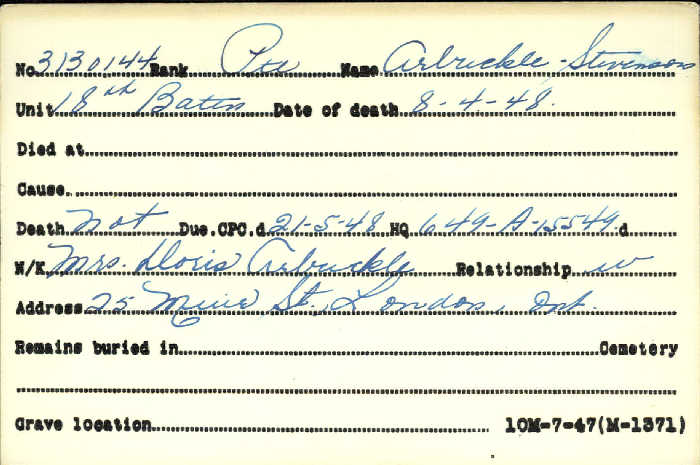 No. 3130144 Rank Pte Name Arbuckle - Stevenson
Unit 18th Batn Date of death 8-4-48.
Died at
Cause
Death not Due. CPC.d 21-5-48 HQ 649-A-15549.d
N/K Mrs. Doris Arbuckle Relationship w
Address 25 St., London, Ont.
Remains buried in Cemetery
Grave location 10M-7-47(M-1371)